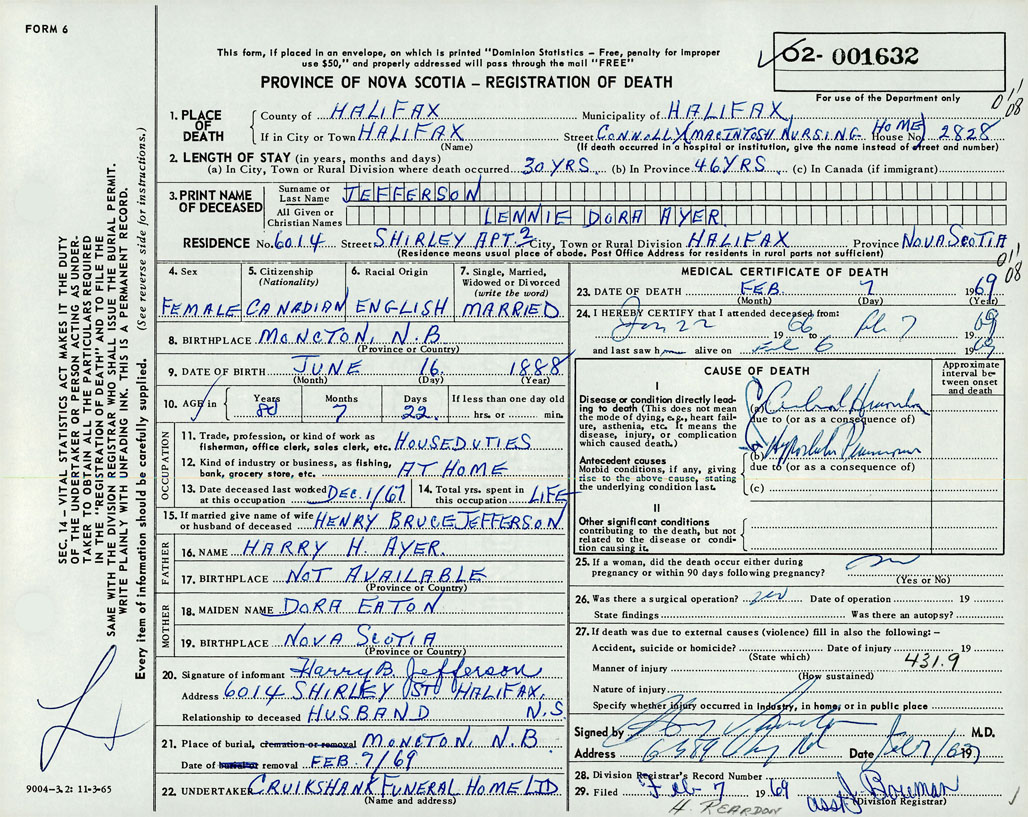 FORM 6
This form, if placed in an envelope, on which is printed "Dominion Statistics - Free, penalty for improper
use $50," and properly addressed will pass through the mail "FREE"
02- 001632
PROVINCE OF NOVA SCOTIA - REGISTRATION OF DEATH
For use of the Department only
011
08
1. PLACE OF DEATH
County of HALIFAX Municipality of HALIFAX
If in City or Town HALIFAX Street CONNOLLY (MACINTOSH NURSING HOME) House No. 2828
(Name) (If death occurred in a hospital or institution, give the name instead of street and number)
2. LENGTH OF STAY (in years, months and days)
(a) In City, Town or Rural Division where death occurred 30 YRS. (b) In Province 46 YRS. (c) In Canada (if immigrant)
3. PRINT NAME OF DECEASED
Surname or Last Name JEFFERSON
All Given or Christian Names LENNIE DORA AYER
RESIDENCE No. 6014 Street SHIRLEY APT. 2 City, Town or Rural Division HALIFAX Province NOVA SCOTIA
(Residence means usual place of abode. Post Office Address for residents in rural parts not sufficient)
011
08
4. Sex
FEMALE
5. Citizenship
(Nationality)
CANADIAN
6. Racial Origin
ENGLISH
7. Single, Married,
Widowed or Divorced
(write the word)
MARRIED
8. BIRTHPLACE MONCTON, N.B
(Province or Country)
9. DATE OF BIRTH JUNE 16. 1888
(Month) (Day) (Year)
10. AGE in Years Months Days If less than one day old
80 7 22 hrs. or min.
OCCUPATION
11. Trade, profession, or kind of work as
fisherman, office clerk, sales clerk, etc. HOUSEDUTIES
12. Kind of industry or business, as fishing,
bank, grocery store, etc. AT HOME
13. Date deceased last worked
at this occupation DEC. 1/67
14. Total yrs. spent in
this occupation LIFE
15. If married give name of wife
or husband of deceased HENRY BRUCE JEFFERSON
FATHER
16. NAME HARRY H. AYER.
17. BIRTHPLACE NOT AVAILABLE
(Province or Country)
MOTHER
18. MAIDEN NAME DORA EATON
19. BIRTHPLACE NOVA SCOTIA
(Province or Country)
20. Signature of informant Harry B. Jefferson
Address 6014 SHIRLEY ST. HALIFAX,
Relationship to deceased HUSBAND N.S.
21. Place of burial, cremation or removal MONCTON, N.B
Date of burial or removal FEB. 7/69
22. UNDERTAKER CRUIKSHANK FUNERAL HOME LTD
(Name and address)
MEDICAL CERTIFICATE OF DEATH
23. DATE OF DEATH FEB. 7 1969
(Month) (Day) (Year)
24. I HEREBY CERTIFY that I attended deceased from:
Jan 22 1966 to Feb 7 1969
and last saw h alive on Feb 6 1969
CAUSE OF DEATH
Approximate interval between onset and death
I
Disease or condition directly leading to death (This does not
mean the mode of dying, e.g., heart failure, asthenia, etc. It means the
disease, injury, or complication
which caused death.)
(a)
due to (or as a consequence of)
Antecedent causes
Morbid conditions, if any, giving
rise to the above cause, stating
the underlying condition last.
(b)
due to (or as a consequence of)
(c)
II
Other significant conditions
contributing to the death, but not
related to the disease or condition causing it.
25. If a woman, did the death occur either during
pregnancy or within 90 days following pregnancy? no
(Yes or No)
26. Was there a surgical operation? no Date of operation 19
State findings Was there an autopsy?
27. If death was due to external causes (violence) fill in also the following: -
Accident, suicide or homicide? Date of injury 19
(State which)
431.9
Manner of injury
(How sustained)
Nature of injury
Specify whether injury occurred in industry, in home, or in public place
Signed by M.D.
Address Date
28. Division Registrar's Record Number
29. Filed Feb 7 1969 asst J. Bowman
(Division Registrar)
H. REARDON
9004-3.2: 11-3-65
SEC. 14 - VITAL STATISTICS ACT MAKES IT THE DUTY
OF THE UNDERTAKER OR PERSON ACTING AS UNDERTAKER TO OBTAIN ALL THE PARTICULARS REQUIRED
IN THE "REGISTRATION OF DEATH" AND TO FILE THE
SAME WITH THE DIVISION REGISTRAR WHO SHALL ISSUE THE BURIAL PERMIT.
WRITE PLAINLY WITH UNFADING INK. THIS IS A PERMANENT RECORD.
Every item of information should be carefully supplied. (See reverse side for instructions.)